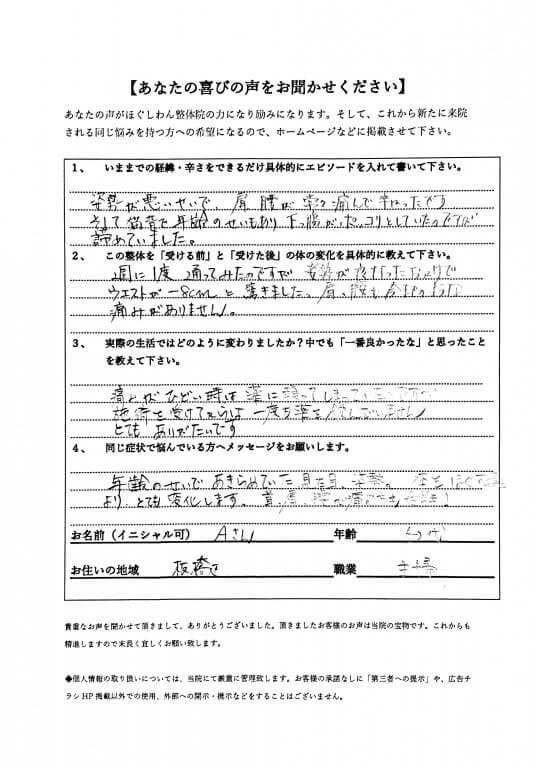 【あなたの喜びの声をお聞かせください】
あなたの声がほぐしわん整体院の力になり励みになります。そして、これから新たに来院
される同じ悩みを持つ方への希望になるので、ホームページなどに掲載させて下さい。
1、 いままでの経緯・辛さをできるだけ具体的にエピソードを入れて書いて下さい。
姿勢が悪いせいで、肩 腰が常に痛んで辛かったです
そして猫背で年齢のせいもあり 下っ腹がポッコリとしていたのですが
諦めていました。
2、 この整体を「受ける前」と「受けた後」の体の変化を具体的に教えて下さい。
週に1度 通ってみたのですが 姿勢が良くなっただけで
ウエストが－8cmと驚きました、肩、腰も
痛みがありません。
3、 実際の生活ではどのように変わりましたか？中でも「一番良かったな」と思ったこと
を教えて下さい。
痛みがひどい時は 薬に頼ってしまっていたのですが
施術を受けてからは 一度も薬を飲んでいません
とても ありがたいです
4、 同じ症状で悩んでいる方へメッセージをお願いします。
年齢のせいであきらめていた
より とても変化します。
お名前（イニシャル可） Aさん 年齢
お住いの地域 板橋区 職業 主婦
貴重なお声を聞かせて頂きまして、ありがとうございました。頂きましたお客様のお声は当院の宝物です。これからも
精進しますので末長く宜しくお願い致します。
◆個人情報の取り扱いについては、当院にて厳重に管理致します。お客様の承諾なしに「第三者への提示」や、広告チ
ラシHP掲載以外での使用、外部への開示・提示などをすることはございません。